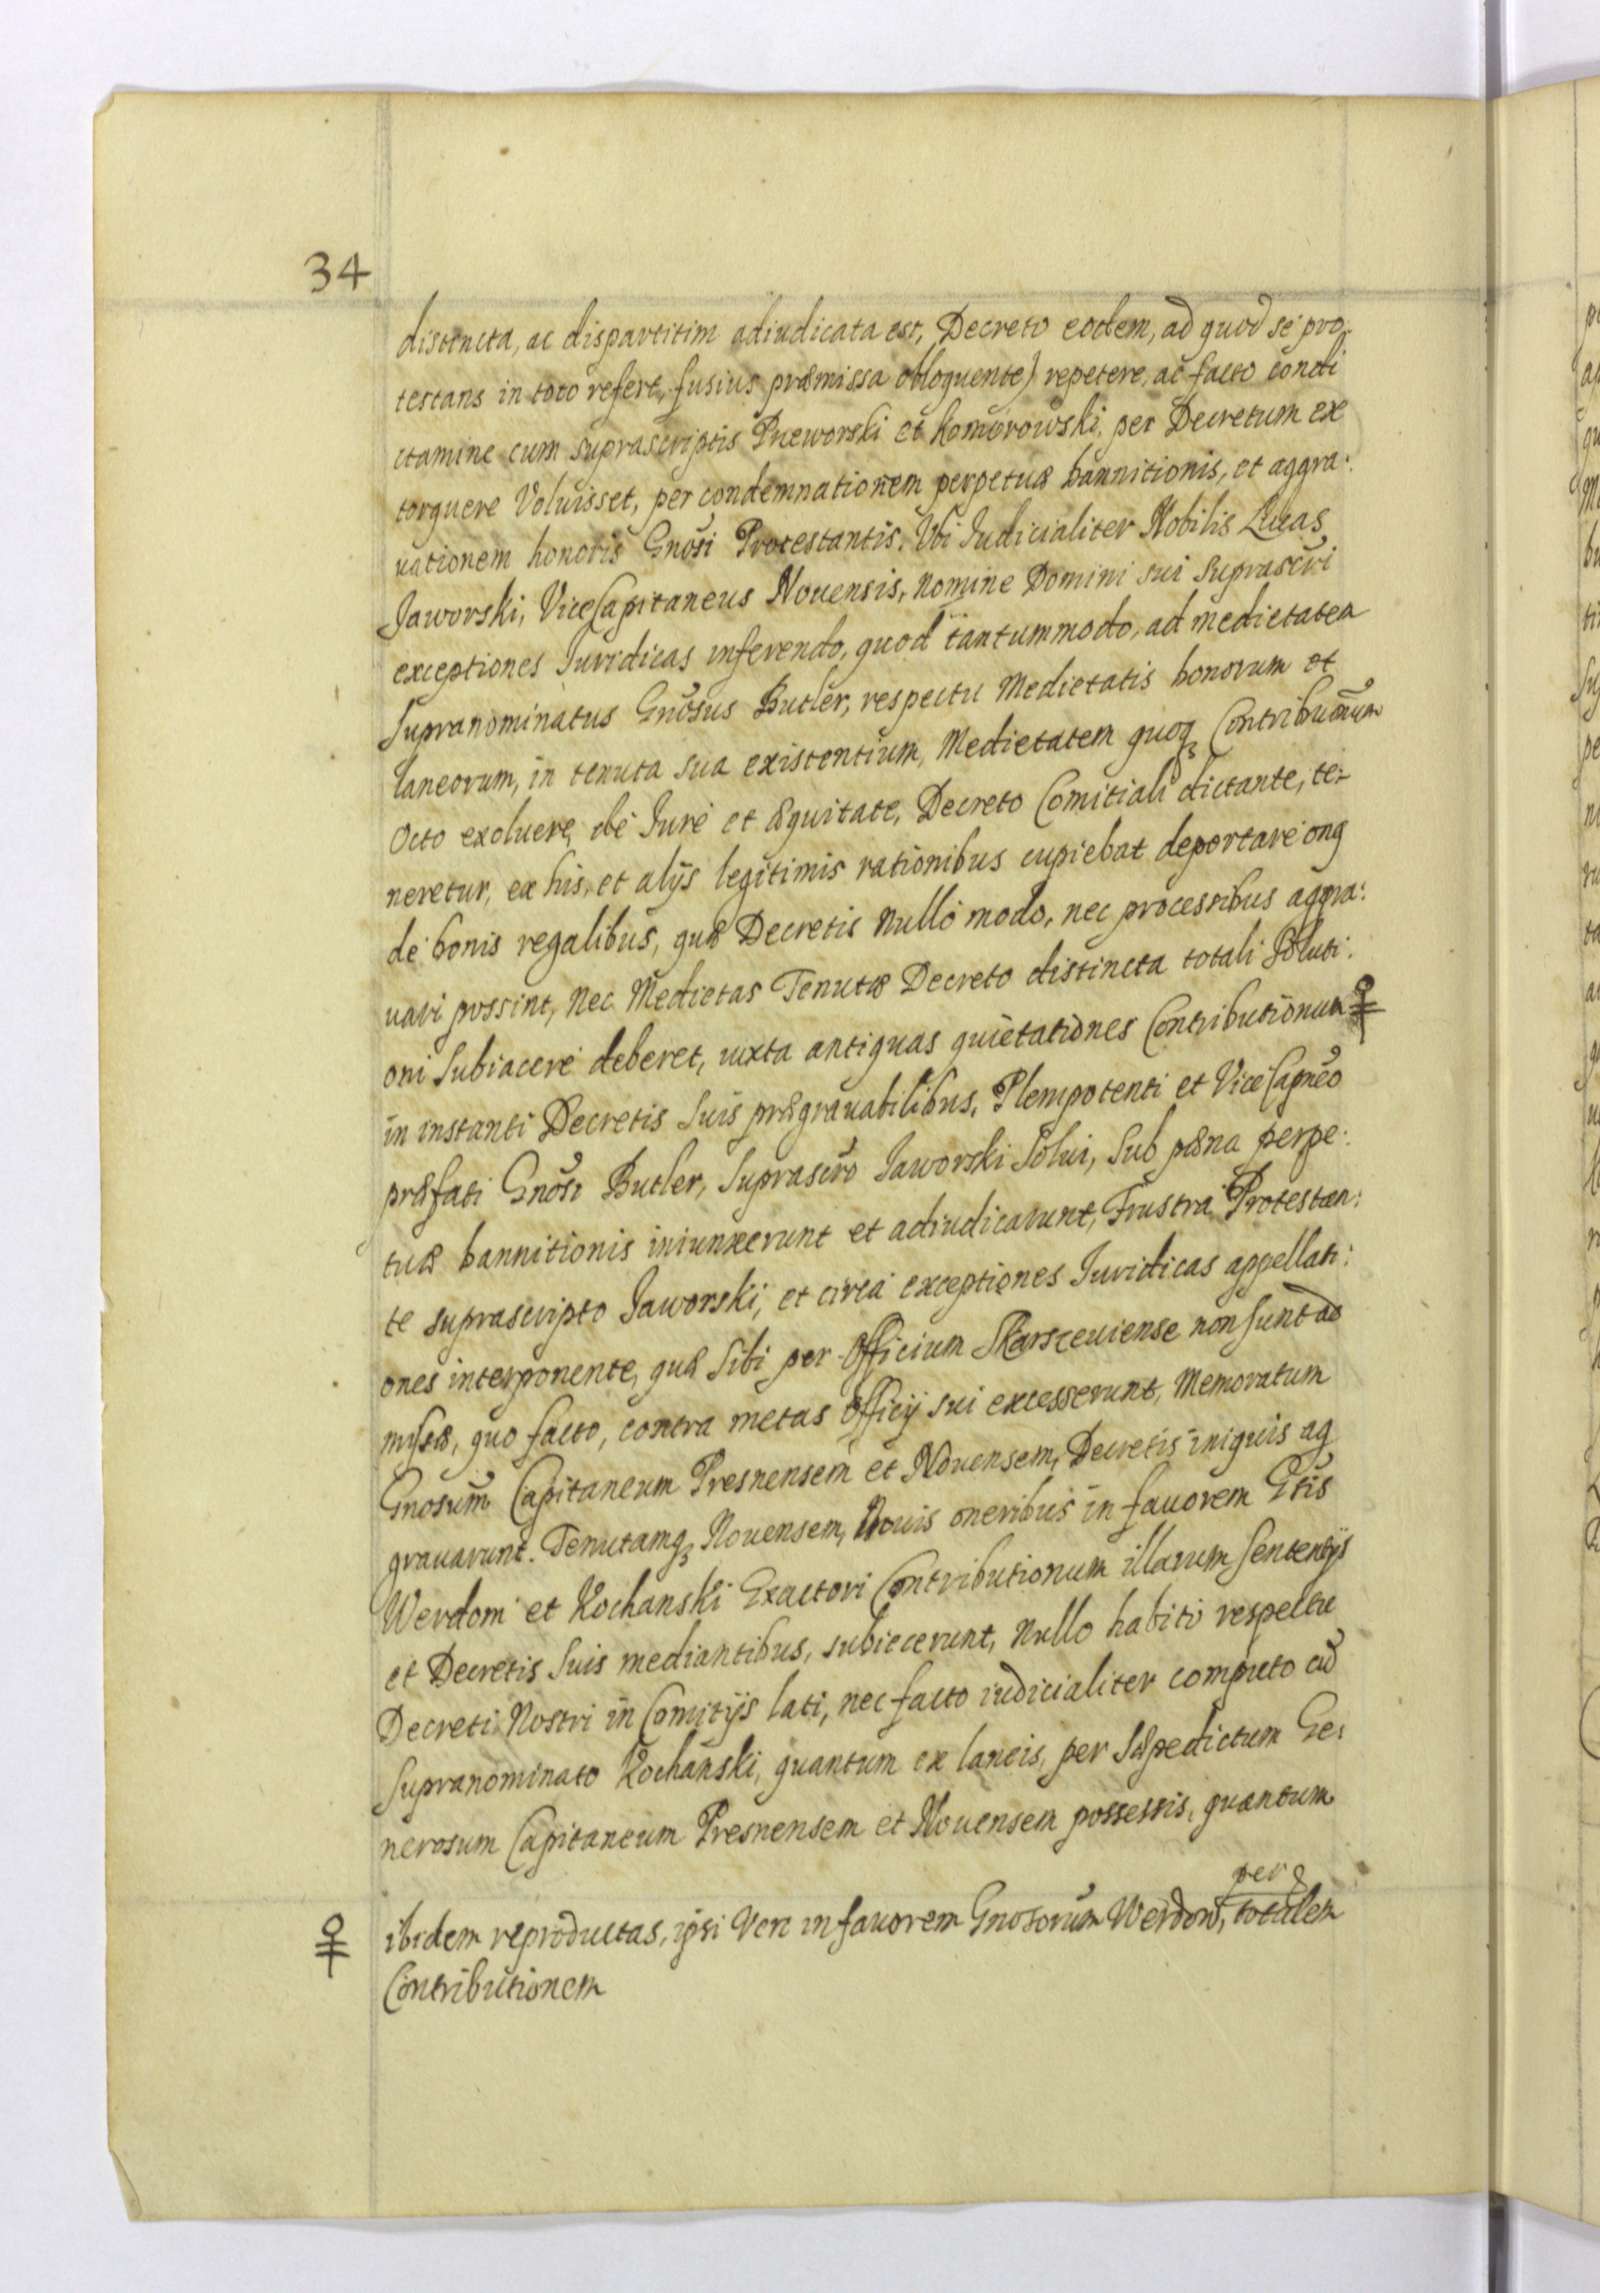 34
distincta, ac dispartitim adiudicata est, Decreto eodem, ad quod se pro:
testans in toto refert, fusius præmissa obloquente) repetere, ac facto condi
ctamine cum suprascriptis Pneworski et Komorowski, per Decretum ex
torquere Voluisset, per condemnationem perpetuæ bannitionis, et aggra:
uationem honoris Gnosi Protestantis. Vbi Iudicialiter Nobilis Lucas
Jaworski, ViceCapitaneus Nouensis, nomine Domini sui Suprascri
exceptiones Iuridicas inferendo, quod tantummodo, ad medietatem
Supranominatus Gnosus Butler, respectu Medietatis bonorum et
laneorum, in tenuta sua existentium, Medietatem quoq Contribuonum
Octo exoluere, de Jure et æquitate, Decreto Comitiali dictante, te:
neretur, ex his, et alijs legitimis rationibus cupiebat deportare ona
de bonis regalibus, quæ Decretis Nullo modo, nec processibus aggra:
uari possint, Nec Medietas Tenutæ Decreto distincta totali Soluti:
oni Subiacere deberet, iuxta antiquas quietationes Contributionum
in instanti Decretis Suis prægrauabilibus, Plempotenti et ViceCapneo
præfati Gnosi Butler, Suprascro Jaworski Solui, Sub pæna perpe:
tuæ bannitionis iniunxerunt et adiudicarunt, Frustra Protestan:
te suprascripto Jaworski, et circa exceptiones Iuridicas appellati:
ones interponente, quæ Sibi per Officium Skarszeuiense non sunt ad
missæ, quo facto, contra metas Officij sui excesserunt, Memoratum
Gnosum Capitaneum Presnensem et Nouensem, Decretis iniquis ag
grauarunt. Tenutamq Nouensem, Nouis oneribus in fauorem Gtis
Werdom et Kochanski Exactori Contributionum illarum Sententijs
et Decretis Suis mediantibus, subiecerunt, Nullo habito respectu
Decreti Nostri in Comitijs lati, nec facto iudicialiter computo cu
Supranominato Kochanski, quantum ex laneis, per Sæpedictum Ge:
nerosum Capitaneum Presnensem et Nouensem possessis, quantum
per
ibidem reproductas, ipsi Vero in fauorem Gnosorum Werdow, totalem
Contributionem